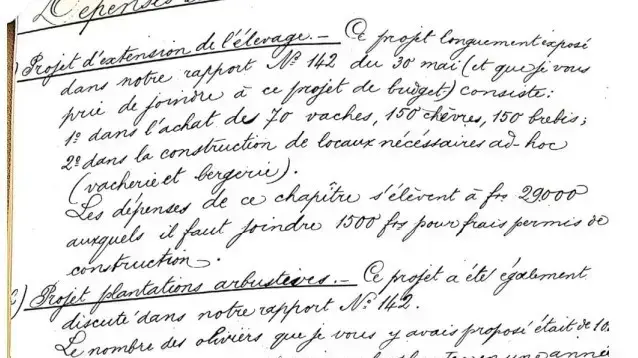 Dépenses
Projet d'extension de l'élevage. — Ce projet longuement exposé
dans notre rapport Nº 142 du 30 mai (et que je vous
prie de joindre à ce projet de budget) consiste:
1º dans l'achat des 70 vaches, 150 chèvres, 150 brebis;
2º dans la construction de locaux nécéssaires ad-hoc
(vacherie et bergerie).
Les dépenses de ce chapître s'élèvent à frs 29000
auxquels il faut joindre 1500 frs pour frais permis de
construction.
Projet plantations arbustives. — Ce projet a été également
discuté dans notre rapport Nº 142.
Le nombre des oliviers que je vous y avais proposé était de 10.